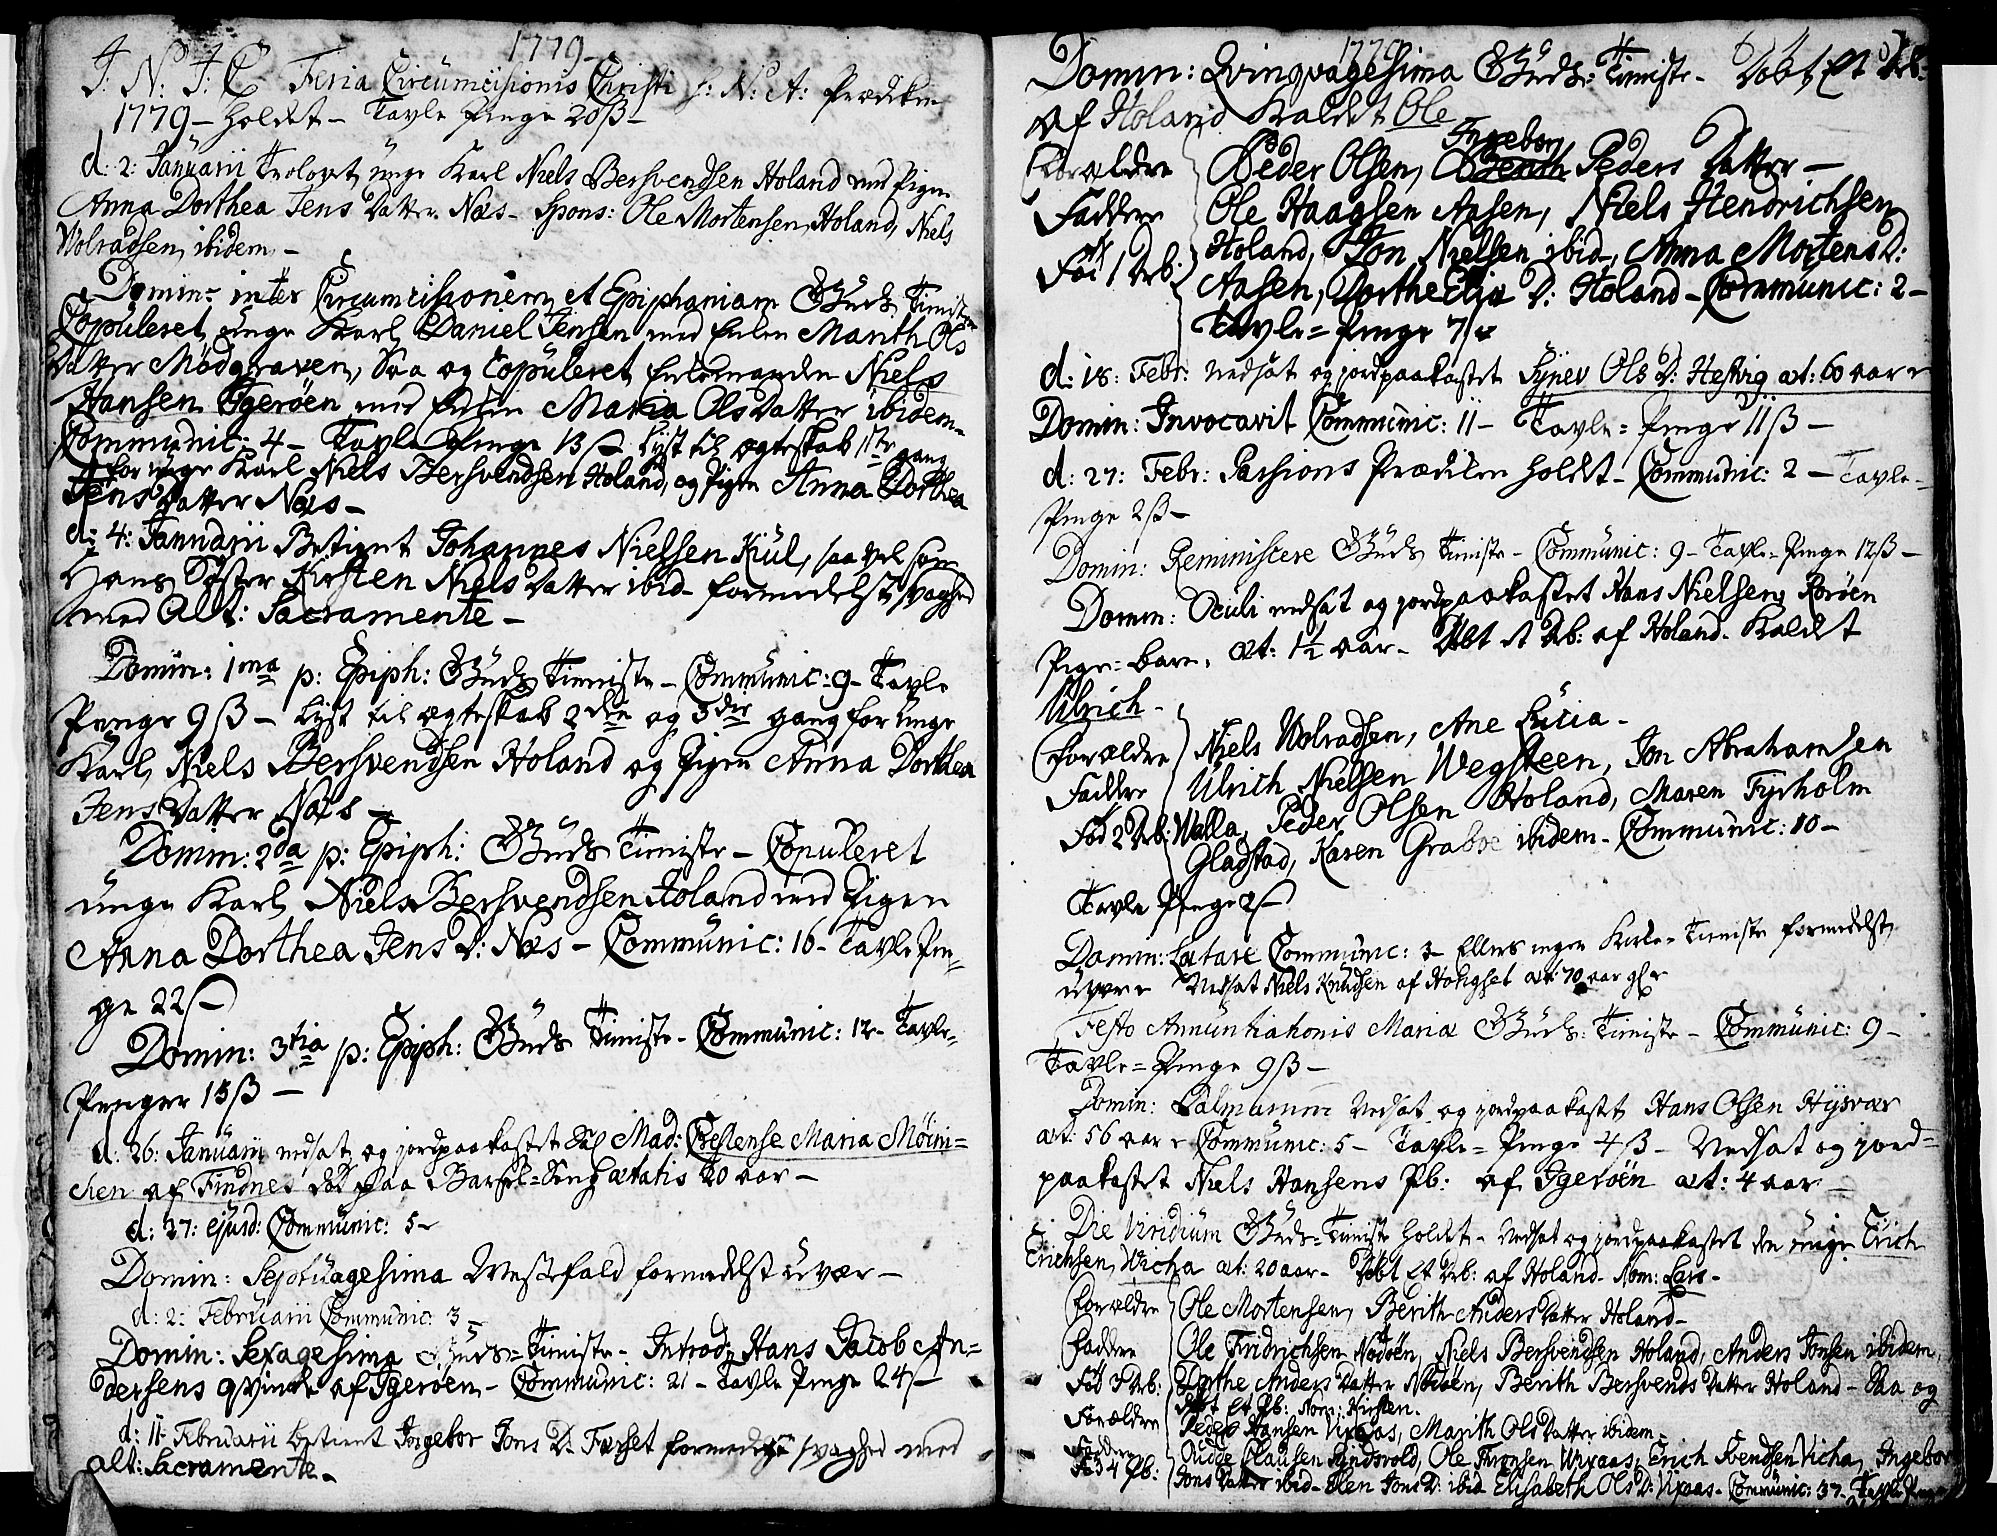 1779
J: N: J: C Feria Circumcisionis Christi h: N: A: Prædiken
1779 – holdt – Tavle Penge 20 ß –
d: 2: Januarii Trolovet unge Karl Niels Bersvendsen Holand med Pigen
Anna Dorthea Jens Datter Næs – Spons: Ole Mortensen, Holand, Niels
Wolradsen, ibidem –
Domin: inter Circumcissionem et Epiphaniam GUds Tieniste
Copuleret unge Karl Daniel Jensen med Enken Marith Ols
Datter Mödgraven, Saa og Copuleret Enkemanden Niels
Hansen Igeröen med Enken Maria Ols Datter ibidem –
Communic: 4 – Tavle Penge 13 ß Lyst til ægteskab 1ste gang
for unge Karl Niels Bersvendsen Holand, og Pigen Anna Dorthea
Jens Datter Næs –
d: 4: Januarii Betient Johannes Nielsen Kiul, saa vel som
Hans Söster Kirsten Niels Datter ibid – formedelst svaghed
med Alt: Sacramente –
Domin: 1ma p: Epiph: GUds Tieniste – Communic: 9 – Tavle
Penge 9 ß – Lyst til ægteskab 2den og 3die gang for unge
Karl, Niels Bersvendsen Holand og Pigen Anna Dorthea
Jens Datter Næs –
Domin: 2da p: Epiph: GUds Tieniste – Copuleret
unge Karl Niels Bersvendsen Holand med Pigen
Anna Dorthea Jens D: Næs – Communic: 16 – Tavle Pen=
ge 22 ß
Domin: 3tia p: Epiph: GUds Tieniste – Communic: 12 – Tavle=
Penger 15 ß –
d: 26: Januarii nedsat og jordpaakastet Sal Mad: Cestense Maria Möini=
chen af Tindnes död paa Barsel=Seng ætatis 20 aar –
d: 27: ejusd: Communic: 5 –
Domin: Septuagesima Messefald formedelst uvær –
d: 2: Februarii Communic: 3 –
Domin: Sexagesima GUds=Tieniste – Introd: Hans Jacob An=
dersens qvinde af Igeroen – Communic: 21 – Tavle Penge 24 ß
d: 11 Februarii betient Ingebor Jons D: Farset formedelst svaghed med
alt: Sacramente –
1779
Domin: Qvinqvagesima GUds=Tieniste – Döbt Et Drb:
af Holand Kaldet Ole
Forældre Peder Olsen, Ingebor Peders Datter –
Faddere Ole Haagsen Aasen, Niels Hendrichsen
Holand, Jon Nielsen ibid –, Anna Mortens D:
Föd 1 Drb: Aasen, Dorthe Elia D: Holand – Communic: 2 –
Tavle=Penge 7 ß
d: 18: Febr: Nedsat og jordpaakastet Synev Ols D: Hestvig æt: 60 aar
Domin: Invocavit Communic: 11 – Tavle=Penge 11 ß –
d: 27: Febr: Passions Prædiken holdt – Communic: 2 – Tavle=
Penge 2 ß –
Domin: Reminiscere GUds Tieniste – Communic: 9 – Tavle=Penge 12 ß –
Domin: Oculi nedsat og jordpaakastet Hans Nielsens Roröen
Pige=barn, æt: 1½ aar – Döbt 1 Drb: af Holand – Kaldet
Ulrich –
Forældre Niels Wolradsen, Ane Lucia –
Faddere Ulrich Nielsen Wegsteen, Jon Abrahamsen
Föd 2 Drb: Walla, Peder Olsen Holand, Maren Fyrholm
Gladstad, Karen Graboe ibidem – Communic: 10 –
Tavle Penge 2 ß
Domin: Lætare Communic: 3 – Ellers ingen Kirke=Tieniste formedelst
uvær Nedsat Niels Knudsen af æt: 70 aar
Festo Annuntiationis Mariæ GUds=Tieniste – Communic: 9 –
Tavle=Penge 9 ß –
Domin: Palmarum Nedsat og jordpaakastet Hans Olsen Hysvær
æt: 56 aar Communic: 5 – Tavle=Penge 4 ß – Nedsat og jord=
paakastet Niels Hansens Pb: af Igeröen æt: 4 aar –
Die Viridium GUds=Tieniste holdt – Nedsat og jordpaakastet den unge Erich
Erichsen, Vicha æt: 20 aar – Döbt Et Drb: af Holand – Nom: Lars –
Forældre Ole Mortensen, Berith Anders Datter Holand –
Faddere Ole Fridrichsen Nödöen, Niels Bersvendsen Holand, Anders Jonsen ibidem,
Föd 3 Drb: Dorthe Anders Datter Nödöen, Benth Bersvends Datter Holand – Saa og
Döbt Et Pb: Nom: Kirsten –
Forældre Peder Hansen Vixaas, Marith Ols Datter ibidem –
Faddere Clausen Rindsvold, Ole Thronsen Wixaas, Erich Svendsen Vicha, Ingebor
Föd 4 Pb: Jons Datter ibid – Elen Jons D: ibid Elisabeth Ols D: Vixaas – Communic: 37 – Tavle Penge